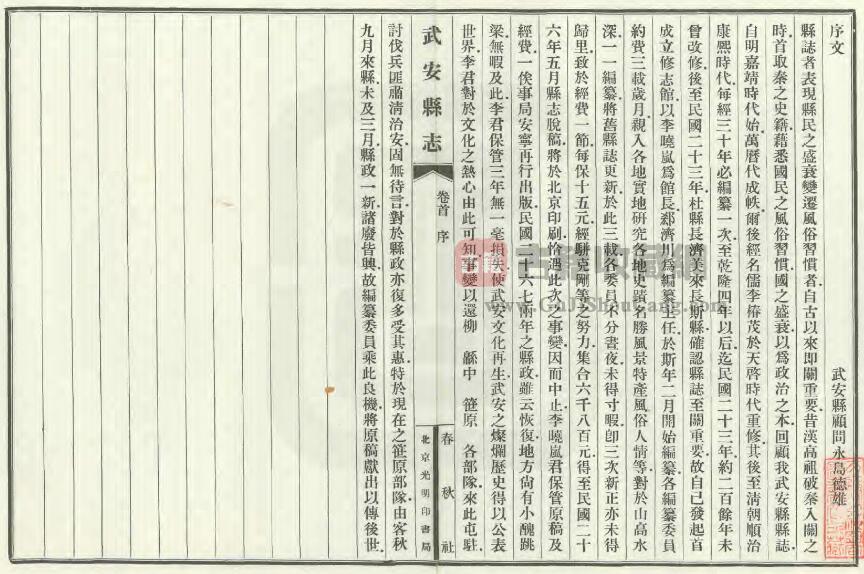 序文
武安縣顧問永島德雄
縣誌者表現縣民之盛衰變遷風俗習慣者自古以來即關重要昔漢高祖破秦入關之
時首取秦之史籍藉悉國民之風俗習慣國之盛衰以爲政治之本回顧我武安縣縣誌
自明嘉靖時代始萬曆代成帙爾後經名儒李椿茂於天啓時代重修其後至淸朝順治
康熙時代每經三十年必編纂一次至乾隆四年以后迄民國二十三年約二百餘年未
曾改修後至民國二十三年杜縣長濟美來長斯縣確認縣誌至關重要故自己發起首
成立修志館以李曉嵐爲館長郄濟川爲編纂主任於斯年二月開始編纂各編纂委員
約費三載歲月親入各地實地研究各地史蹟名勝風景特產風俗人情等對於山高水
深一一編纂將舊縣誌更新於此三載各委員不分晝夜未得寸暇卽三次新正亦未得
歸里致於經費一節每保十五元經騈克剛等之努力集合六千八百元得至民國二十
六年五月縣志脫稿將於北京印刷恰遇此次之事變因而中止李曉嵐君保管原稿及
經費一俟事局安寧再行出版民國二十六七兩年之縣政雖云恢復地方尙有小醜跳
梁無暇及此李君保管三年無一毫損失使武安文化再生武安之燦爛歷史得以公表
世界李君對於文化之熱心由此可知事變以還柳 緜中 笹原 各部隊來此屯駐
武安縣志
卷首 序
春秋社
北京光明印書局
討伐兵匪肅淸治安固無待言對於縣政亦復多受其惠特於現在之笹原部隊由客秋
九月來縣未及三月縣政一新諸廢皆興故編纂委員乘此良機將原稿獻出以傳後世
古籍收藏網
www.GuJiShouCang.com